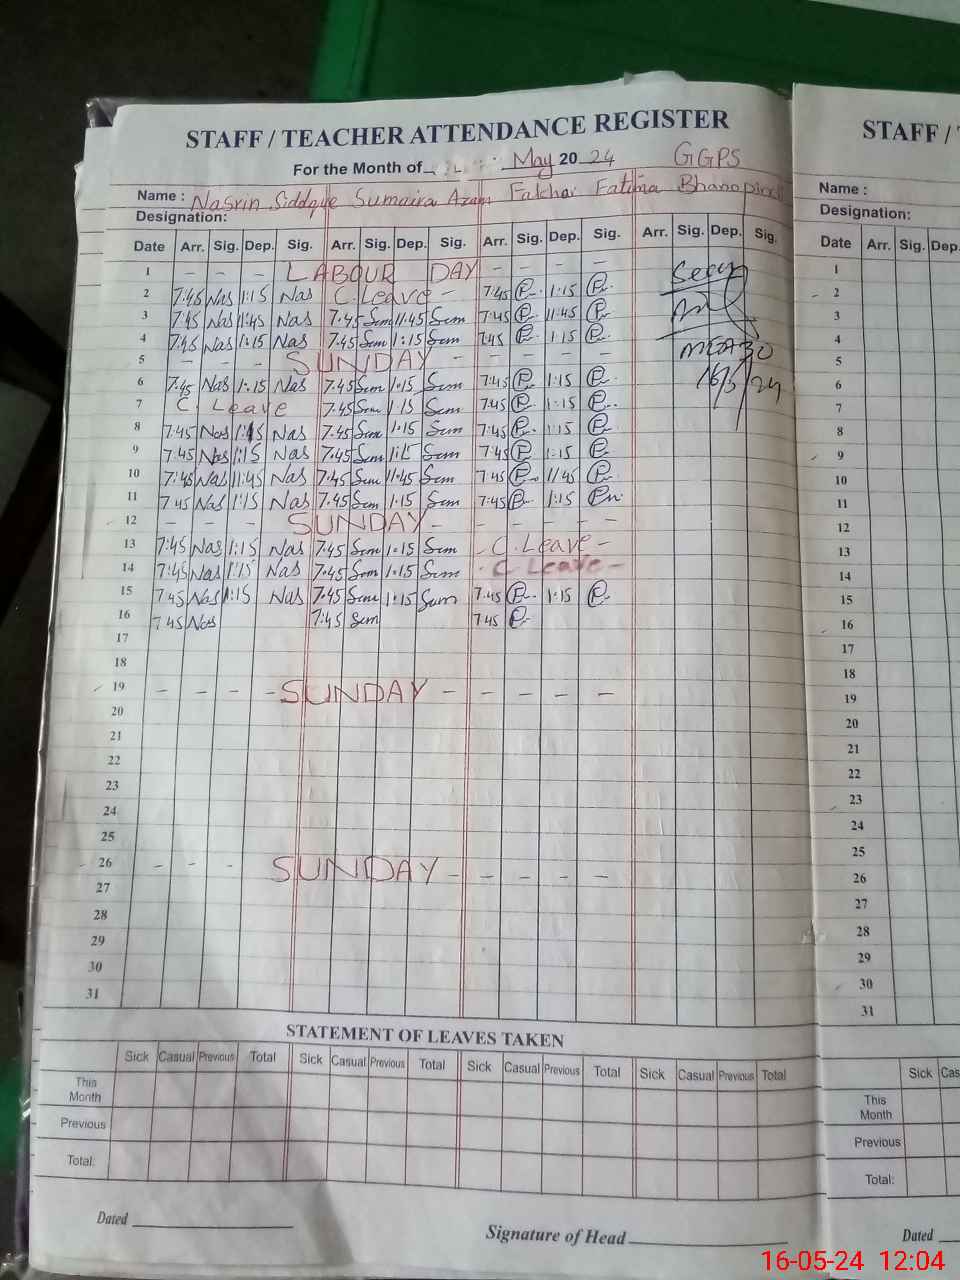 STAFF / TEACHER ATTENDANCE REGISTER
For the Month of May 2024 GGPS
Name : Nasrin Siddque Sumaira Azam Fatima
Designation:
Date Arr. Sig. Dep. Sig. Arr. Sig. Dep. Sig. Arr. Sig. Dep. Sig. Arr. Sig. Dep. Sig.
1 - - - LABOUR DAY - - - -
2 7:45 Nas 1:15 Nas C. Leave - 7:45 1:15
3 7:45 Nas 11:45 Nas 7:45 Sum 11:45 Sum 7:45 11:45
4 7:45 Nas 1:15 Nas 7:45 Sum 1:15 Sum 7:45 1:15
5 - - - SUNDAY - - - - -
6 7:45 Nas 1:15 Nas 7:45 Sum 1:15 Sum 7:45 1:15
7 C. Leave 7:45 Sum 1:15 Sum 7:45 1:15
8 7:45 Nas 1:15 Nas 7:45 Sum 1:15 Sum 7:45 1:15
9 7:45 Nas 1:15 Nas 7:45 Sum 1:15 Sum 7:45 1:15
10 7:45 Nas 11:45 Nas 7:45 Sum 11:45 Sum 7:45 11:45
11 7:45 Nas 1:15 Nas 7:45 Sum 1:15 Sum 7:45 1:15
12 - - - SUNDAY - - - - - -
13 7:45 Nas 1:15 Nas 7:45 Sum 1:15 Sum - C. Leave -
14 7:45 Nas 1:15 Nas 7:45 Sum 1:15 Sum - C Leave -
15 7:45 Nas 1:15 Nas 7:45 Sum 1:15 Sum 7:45 1:15
16 7:45 Nas 7:45 Sum 7:45
17
18
19 - - - - SUNDAY - - - - -
20
21
22
23
24
25
26 - - - SUNDAY - - - - -
27
28
29
30
31
Seen
MEA 30
16/5/24
STATEMENT OF LEAVES TAKEN
Sick Casual Previous Total Sick Casual Previous Total Sick Casual Previous Total Sick Casual Previous Total
This Month
Previous
Total:
Dated
Signature of Head
STAFF /
Name :
Designation:
Date Arr. Sig. Dep.
1
2
3
4
5
6
7
8
9
10
11
12
13
14
15
16
17
18
19
20
21
22
23
24
25
26
27
28
29
30
31
Sick
This Month
Previous
Total:
Dated
16-05-24 12:04